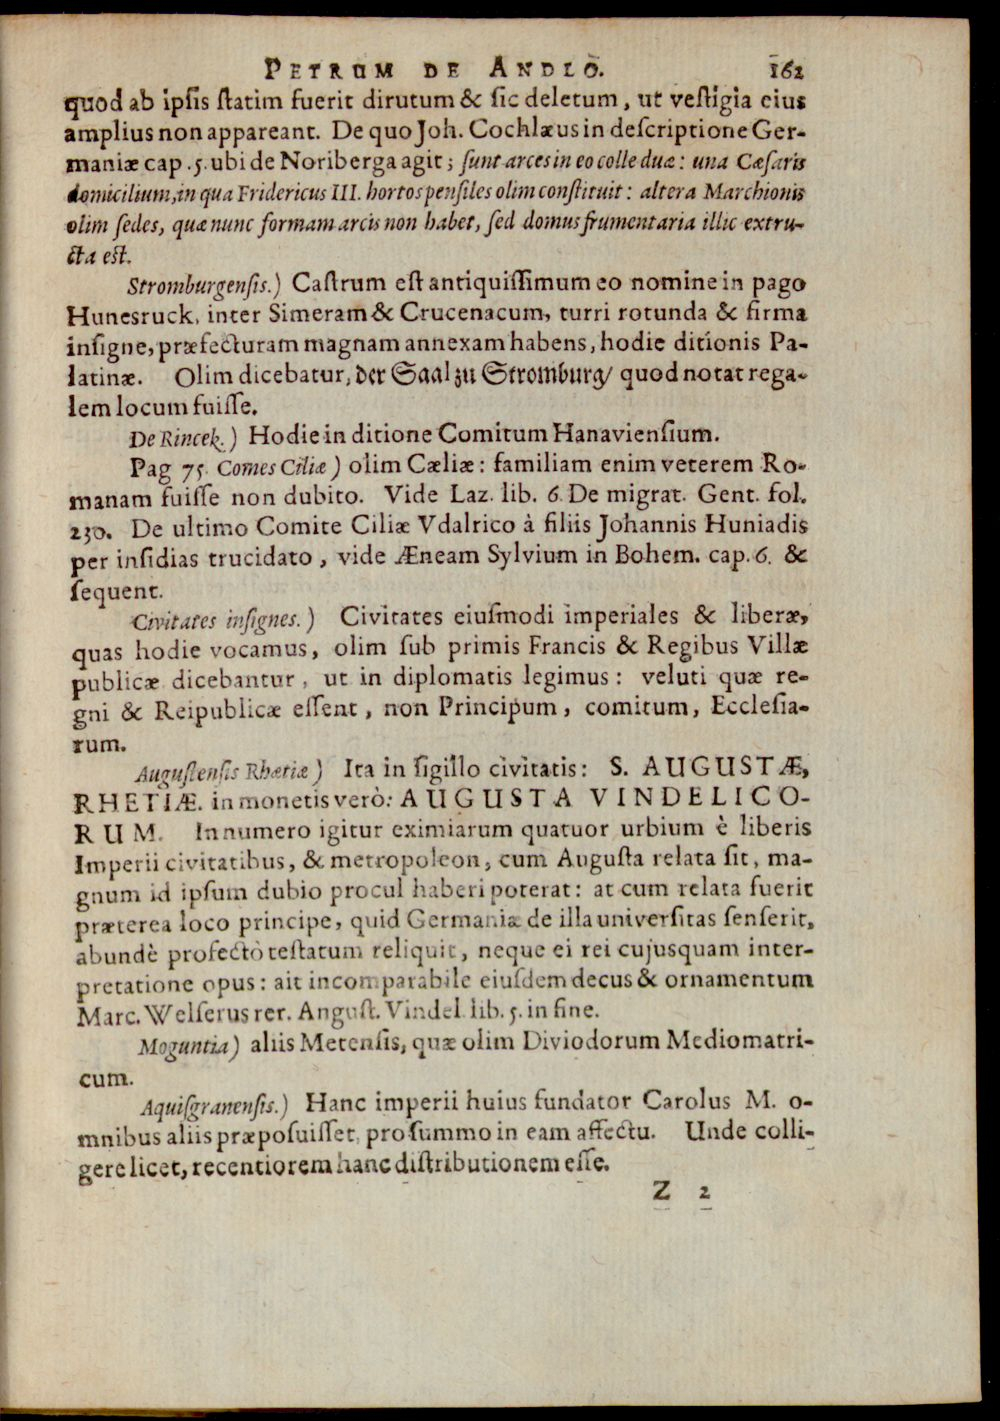 PETRUM DE ANDLO. 162
quod ab ipſis ſtatim fuerit dirutum & ſic deletum, ut veſtigia eius
amplius non appareant. De quo Joh. Cochlæus in deſcriptione Ger-
maniæ cap. 5. ubi de Noriberga agit; ſunt arces in eo colle duæ: una Cæſaris
domicilium, in qua Fridericus III. hortos penſiles olim conſtituit: altera Marchionis
olim ſedes, quæ nunc formam arcis non habet, ſed domus frumentaria illic extru-
cta eſt.
Stromburgenſis.) Caſtrum eſt antiquiſſimum eo nomine in pago
Hunesruck, inter Simeram & Crucenacum, turri rotunda & firma
inſigne, præfecturam magnam annexam habens, hodie ditionis Pa-
latinæ. Olim dicebatur, der Saal zu Stromburg/ quod notat rega-
lem locum fuiſſe.
De Rincek.) Hodie in ditione Comitum Hanavienſium.
Pag 75. Comes Ciliæ) olim Cæliæ: familiam enim veterem Ro-
manam fuiſſe non dubito. Vide Laz. lib. 6. De migrat. Gent. fol.
230. De ultimo Comite Ciliæ Vdalrico à filiis Johannis Huniadis
per inſidias trucidato, vide Æneam Sylvium in Bohem. cap. 6. &
ſequent.
Civitates inſignes.) Civitates eiuſmodi imperiales & liberæ,
quas hodie vocamus, olim ſub primis Francis & Regibus Villæ
publicæ dicebantur, ut in diplomatis legimus: veluti quæ re-
gni & Reipublicæ eſſent, non Principum, comitum, Eccleſia-
rum.
Auguſtenſis Rhætiæ) Ita in ſigillo civitatis: S. AUGUSTÆ,
RHETIÆ. in monetis verò: AUGUSTA VINDELICO-
RUM. In numero igitur eximiarum quatuor urbium è liberis
Imperii civitatibus, & metropoleon, cum Auguſta relata ſit, ma-
gnum id ipſum dubio procul haberi poterat: at cum relata fuerit
præterea loco principe, quid Germaniæ de illa univerſitas ſenſerit,
abundè profectò teſtatum reliquit, neque ei rei cujusquam inter-
pretatione opus: ait incomparabile eiuſdem decus & ornamentum
Marc. Welſerus rer. Auguſt. Vindel lib. 5. in fine.
Moguntia) aliis Metenſis, quæ olim Diviodorum Mediomatri-
cum.
Aquiſgranenſis.) Hanc imperii huius fundator Carolus M. o-
mnibus aliis præpoſuiſſet, pro ſummo in eam affectu. Unde colli-
gere licet, recentiorem hanc diſtributionem eſſe.
Z 2